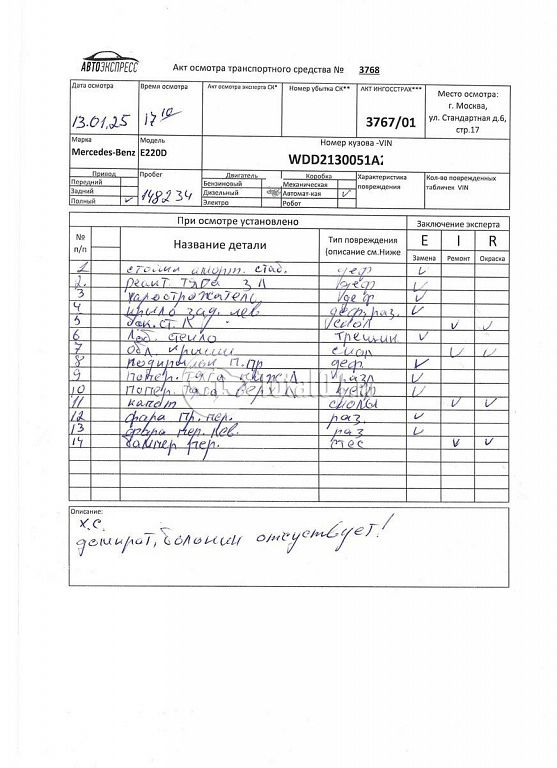 АВТОЭКСПРЕСС
Акт осмотра транспортного средства № 3768
Дата осмотра Время осмотра Акт осмотра эксперта СК* Номер убытка СК** АКТ ИНГОССТРАХ*** Место осмотра:
г. Москва,
ул. Стандартная д.6,
стр.17
13.01.25 17 10 3767/01
Марка Модель Номер кузова -VIN
Mercedes-Benz E220D WDD2130051A2
Привод Пробег Двигатель Коробка Характеристика повреждения Кол-во поврежденных табличек VIN
Передний Бензиновый Механическая
Задний 148234 Дизельный Автомат-кая ✓
Полный ✓ Электро Робот
При осмотре установлено Заключение эксперта
№ п/п Название детали Тип повреждения (описание см.Ниже E I R
Замена Ремонт Окраска
1 стойки аморт. стаб. деф ✓
2. реакт. тяга з Л деф ✓
3 деф ✓
4 крыло зад. лев деф. раз. ✓
5 скол ✓ ✓
6 Лоб. стекло трещин ✓
7 обл. крыши скол ✓ ✓
8 подкрылки п. пр деф. ✓
9 попер. тяга нижн Л разл ✓
10 попер. тяга верх Л ✓
11 капот сколы ✓ ✓
12 фара пр. пер. раз. ✓
13 фара пер. лев. раз ✓
14 бампер пер. ✓ ✓
Описание:
Х.С.
домкрат, балонник отсуствует!